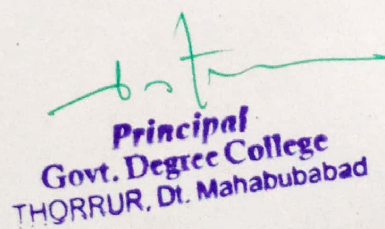 Principal
Govt. Degree College
THORRUR, Dt. Mahabubabad